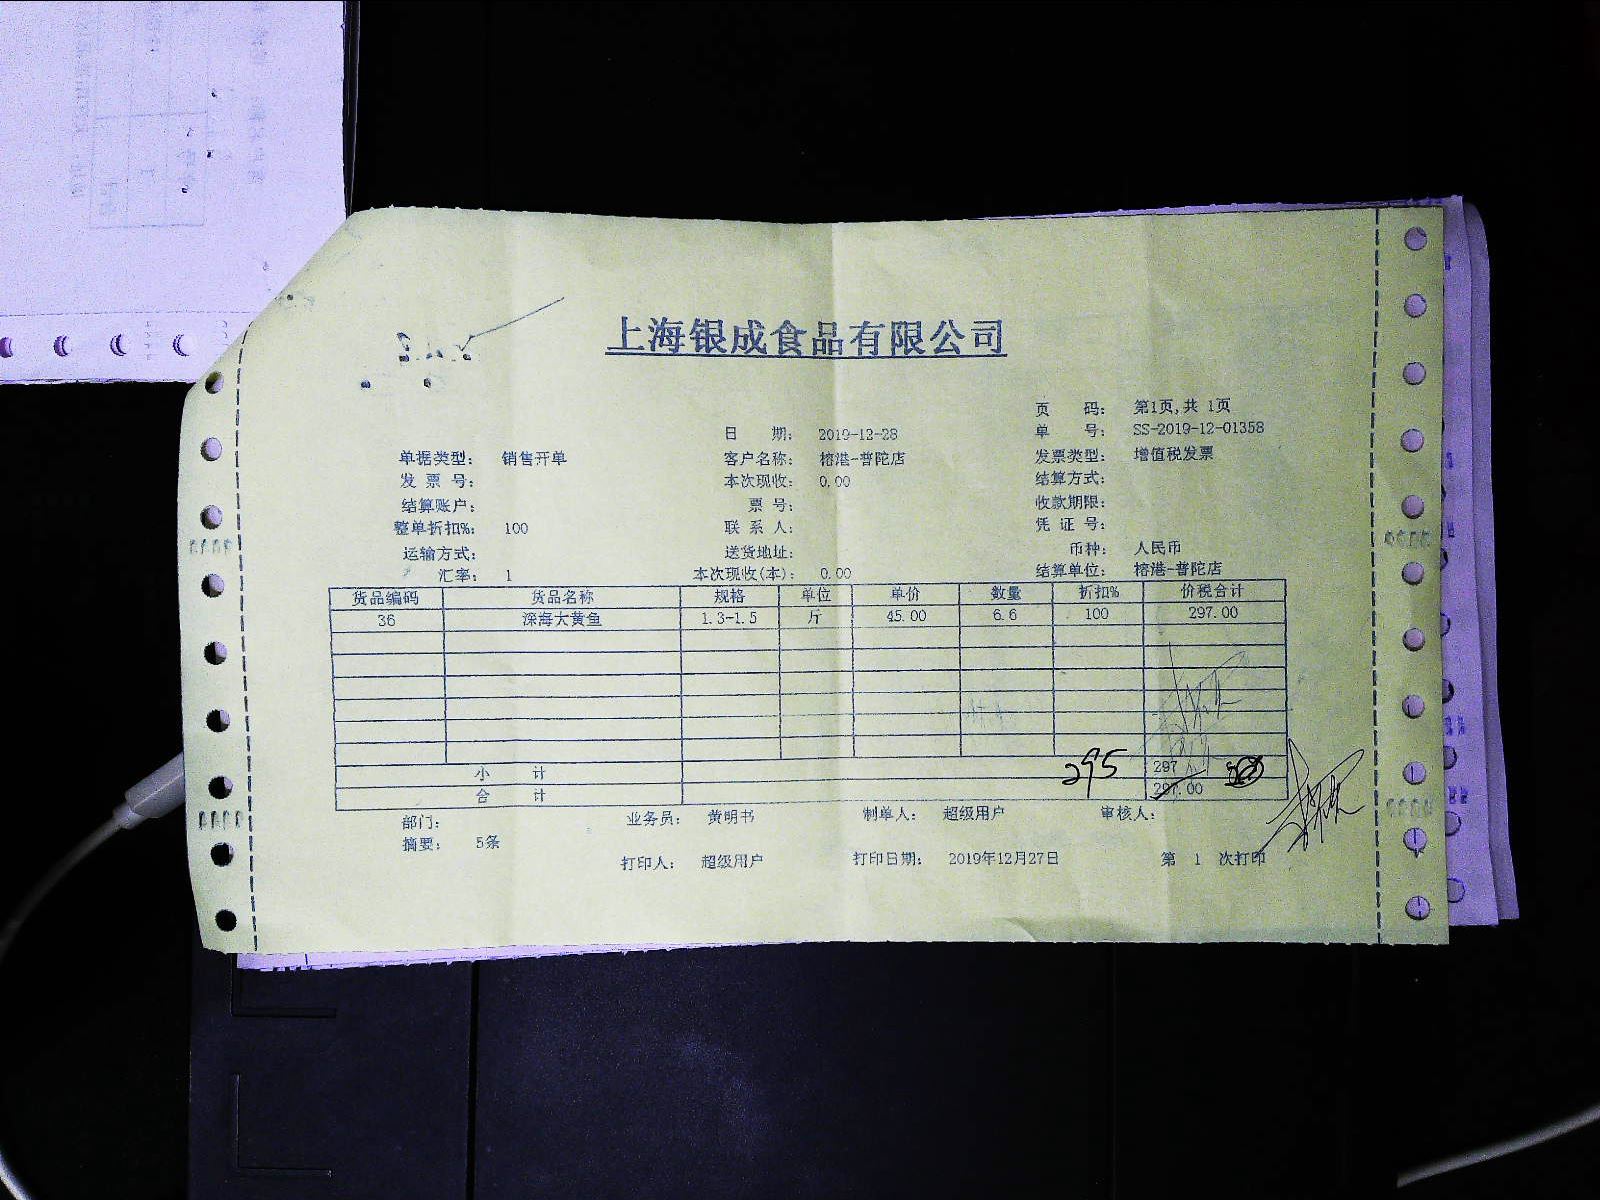 上海银成食品有限公司
页 码: 第1页,共 1页
日 期: 2019-12-28 单 号: SS-2019-12-01358
单据类型: 销售开单 客户名称: 榕港-普陀店 发票类型: 增值税发票
发 票 号: 本次现收: 0.00 结算方式:
结算账户: 票 号: 收款期限:
整单折扣%: 100 联 系 人: 凭 证 号:
运输方式: 送货地址: 币种: 人民币
汇率: 1 本次现收(本): 0.00 结算单位: 榕港-普陀店
货品编码 货品名称 规格 单位 单价 数量 折扣% 价税合计
36 深海大黄鱼 1.3-1.5 斤 45.00 6.6 100 297.00
295
小 计 297
合 计 297.00
部门: 业务员: 黄明书 制单人: 超级用户 审核人:
摘要: 5条
打印人: 超级用户 打印日期: 2019年12月27日 第 1 次打印